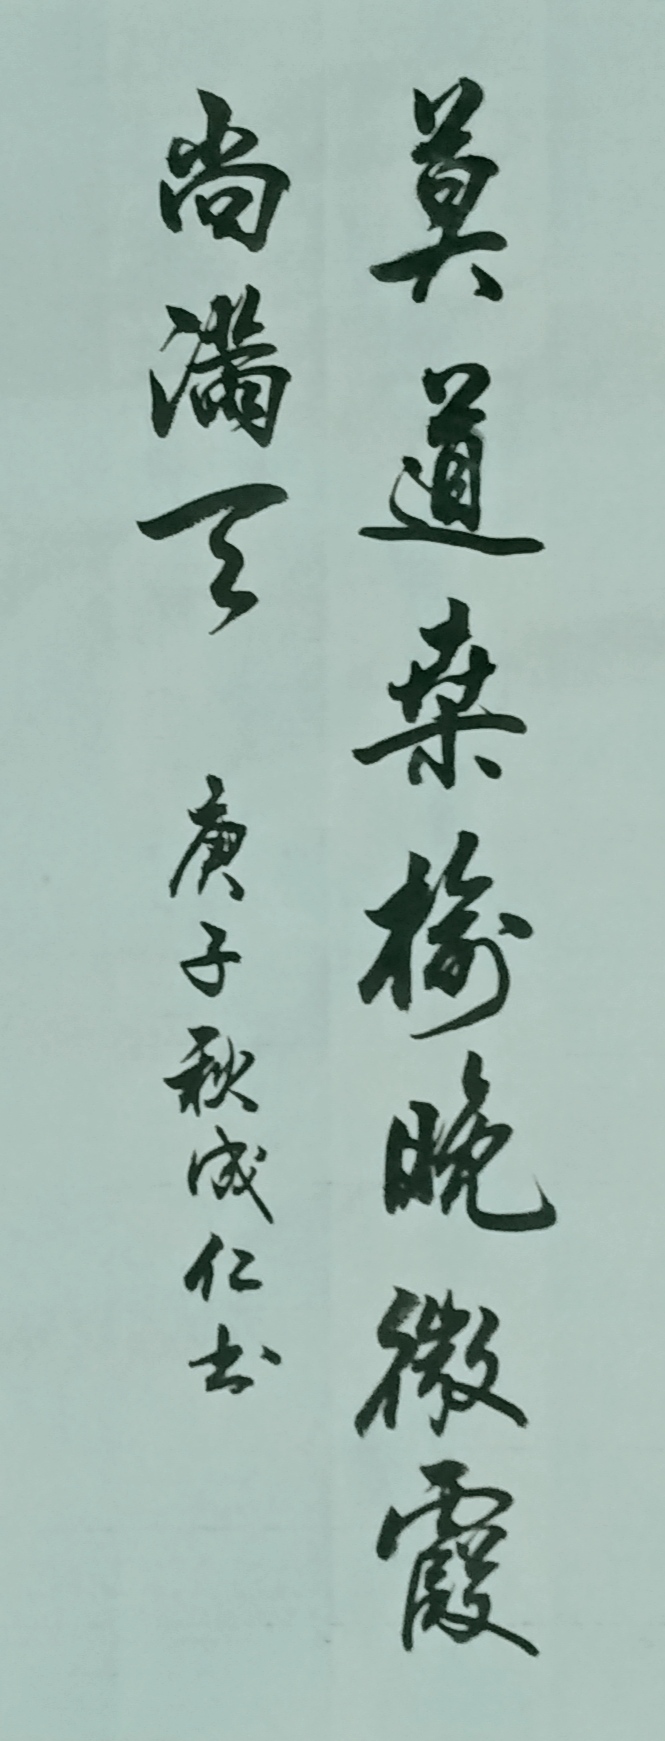 莫道桑榆晚微霞
尚满天 庚子秋成仁书